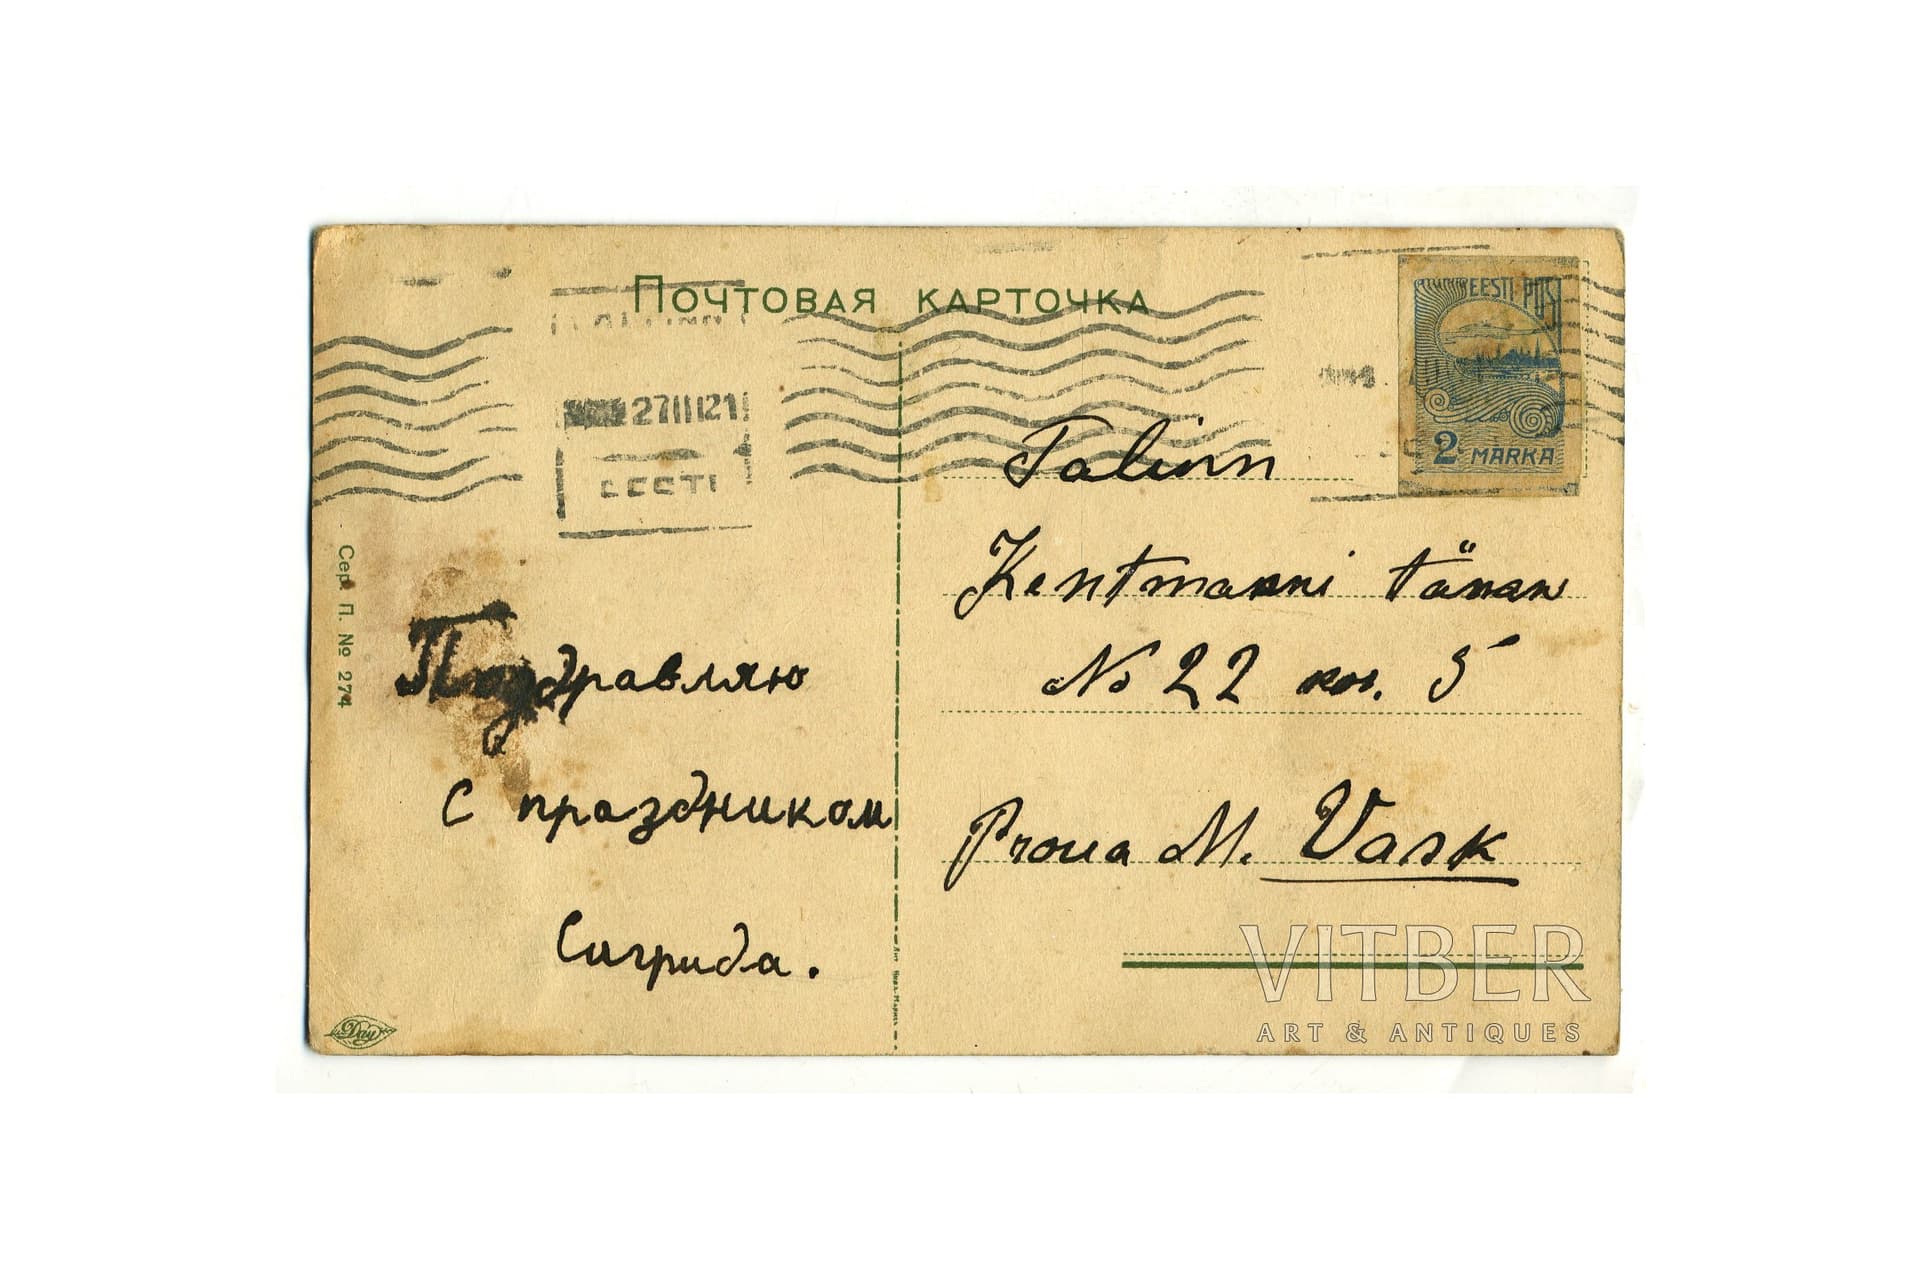 Почтовая карточка
27 III 21
EESTI
EESTI POST
2 MARKA
Talinn
Kentmanni tänaw
№ 22 кв. 5
Proua M. Vask
Поздравляю
с праздником
Сигрида.
Сер. П. № 274
Day
VITBER
ART & ANTIQUES